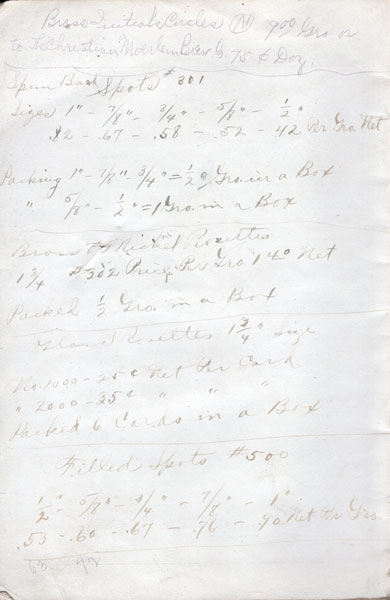 Brass Initials Circles (M) 900 Gro or
to The Christian Moerlein Brew Co 75 ¢ Doz.
Spun Back Spots #301
Sizes 1" - 7/8" - 3/4" - 5/8" - 1/2"
.82 - .67 - .58 - .52 - .42 Per Gro. Net
Packing 1" - 7/8" - 3/4" = 1/2 Gro. in a Box
" 5/8" - 1/2" = 1 Gro. in a Box
Brass or Nickel Rosettes
1 3/4 #302 Price Per Gro 140 Net
Packed 1/2 Gro. in a Box
Rosettes 1 3/4" Size
No. 1000 - 25¢ Net Per Card
" 2000 - 35¢ " " "
Packed 6 Cards in a Box
Filled Spots #500
1/2" - 5/8" - 3/4" - 7/8" - 1"
.53 - .60 - .67 - .76 - .90 Net Per Gro